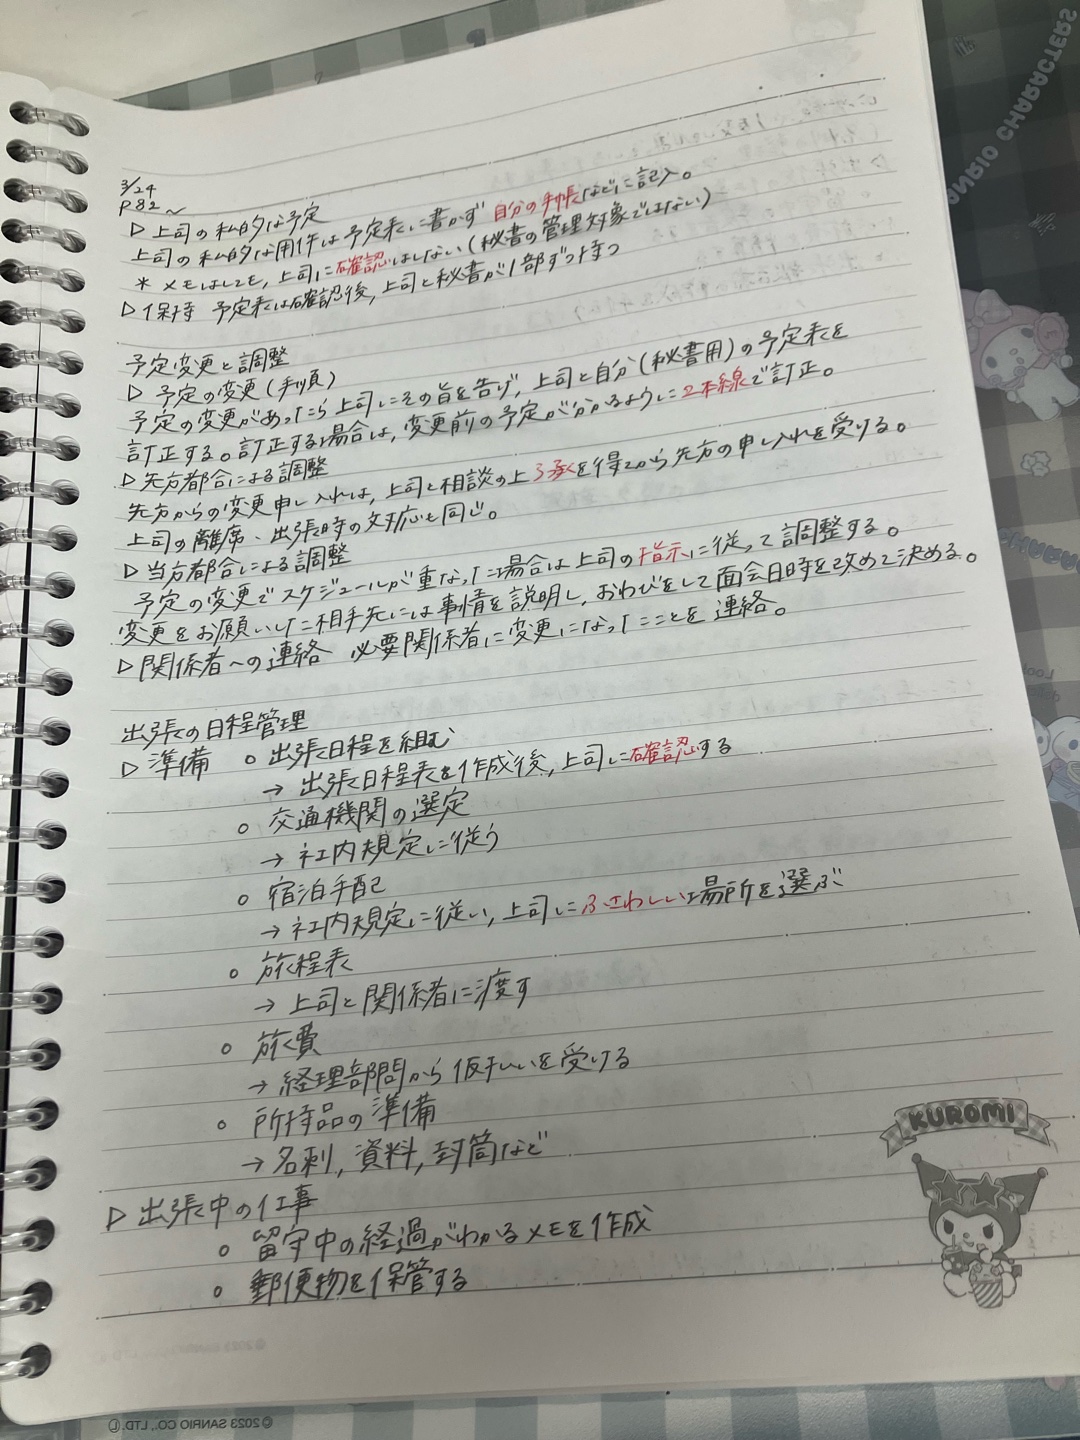 3/24
P82~
▷上司の私的な予定
上司の私的な用件は予定表に書かず自分の手帳などに記入。
* メモはしても,上司に確認はしない(秘書の管理対象ではない)
▷保持 予定表は確認後,上司と秘書が1部ずつ持つ
予定変更と調整
▷予定の変更(手順)
予定の変更があったら上司にその旨を告げ,上司と自分(秘書用)の予定表を
訂正する。訂正する場合は,変更前の予定が分かるように2本線で訂正。
▷先方都合による調整
先方からの変更申し入れは,上司と相談の上了承を得てから先方の申し入れを受ける。
上司の離席、出張時の対応も同じ。
▷当方都合による調整
予定の変更でスケジュールが重なった場合は上司の指示に従って調整する。
変更をお願いした相手先には事情を説明し,おわびをして面会日時を改めて決める。
▷関係者への連絡 必要関係者に変更になったことを連絡。
出張の日程管理
▷準備 ○出張日程を組む
→出張日程表を作成後,上司に確認する
○交通機関の選定
→社内規定に従う
○宿泊手配
→社内規定に従い,上司にふさわしい場所を選ぶ
○旅程表
→上司と関係者に渡す
○旅費
→経理部門から仮払いを受ける
○所持品の準備
→名刺,資料,封筒など
▷出張中の仕事
○留守中の経過がわかるメモを作成
○郵便物を保管する
KUROMI
SANRIO CHARACTERS
©2023 SANRIO CO., LTD. Ⓛ